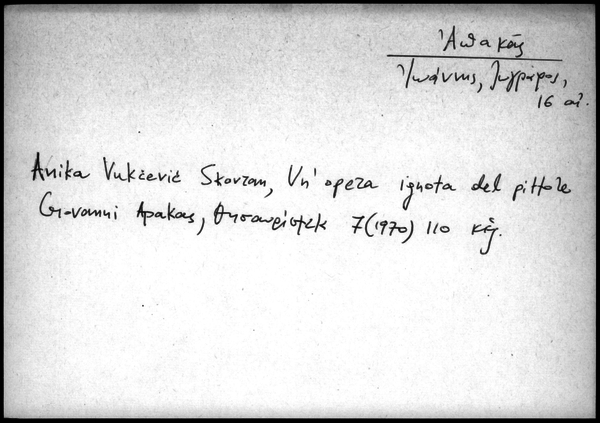 Ἀπακάς
Ἰωάννης, ζωγράφος,
16 αἰ.
Anika Vukčević Skovran, Un' opera ignota del pittore
Giovanni Apakas, Θησαυρίσματα 7(1970) 110 κἑξ.